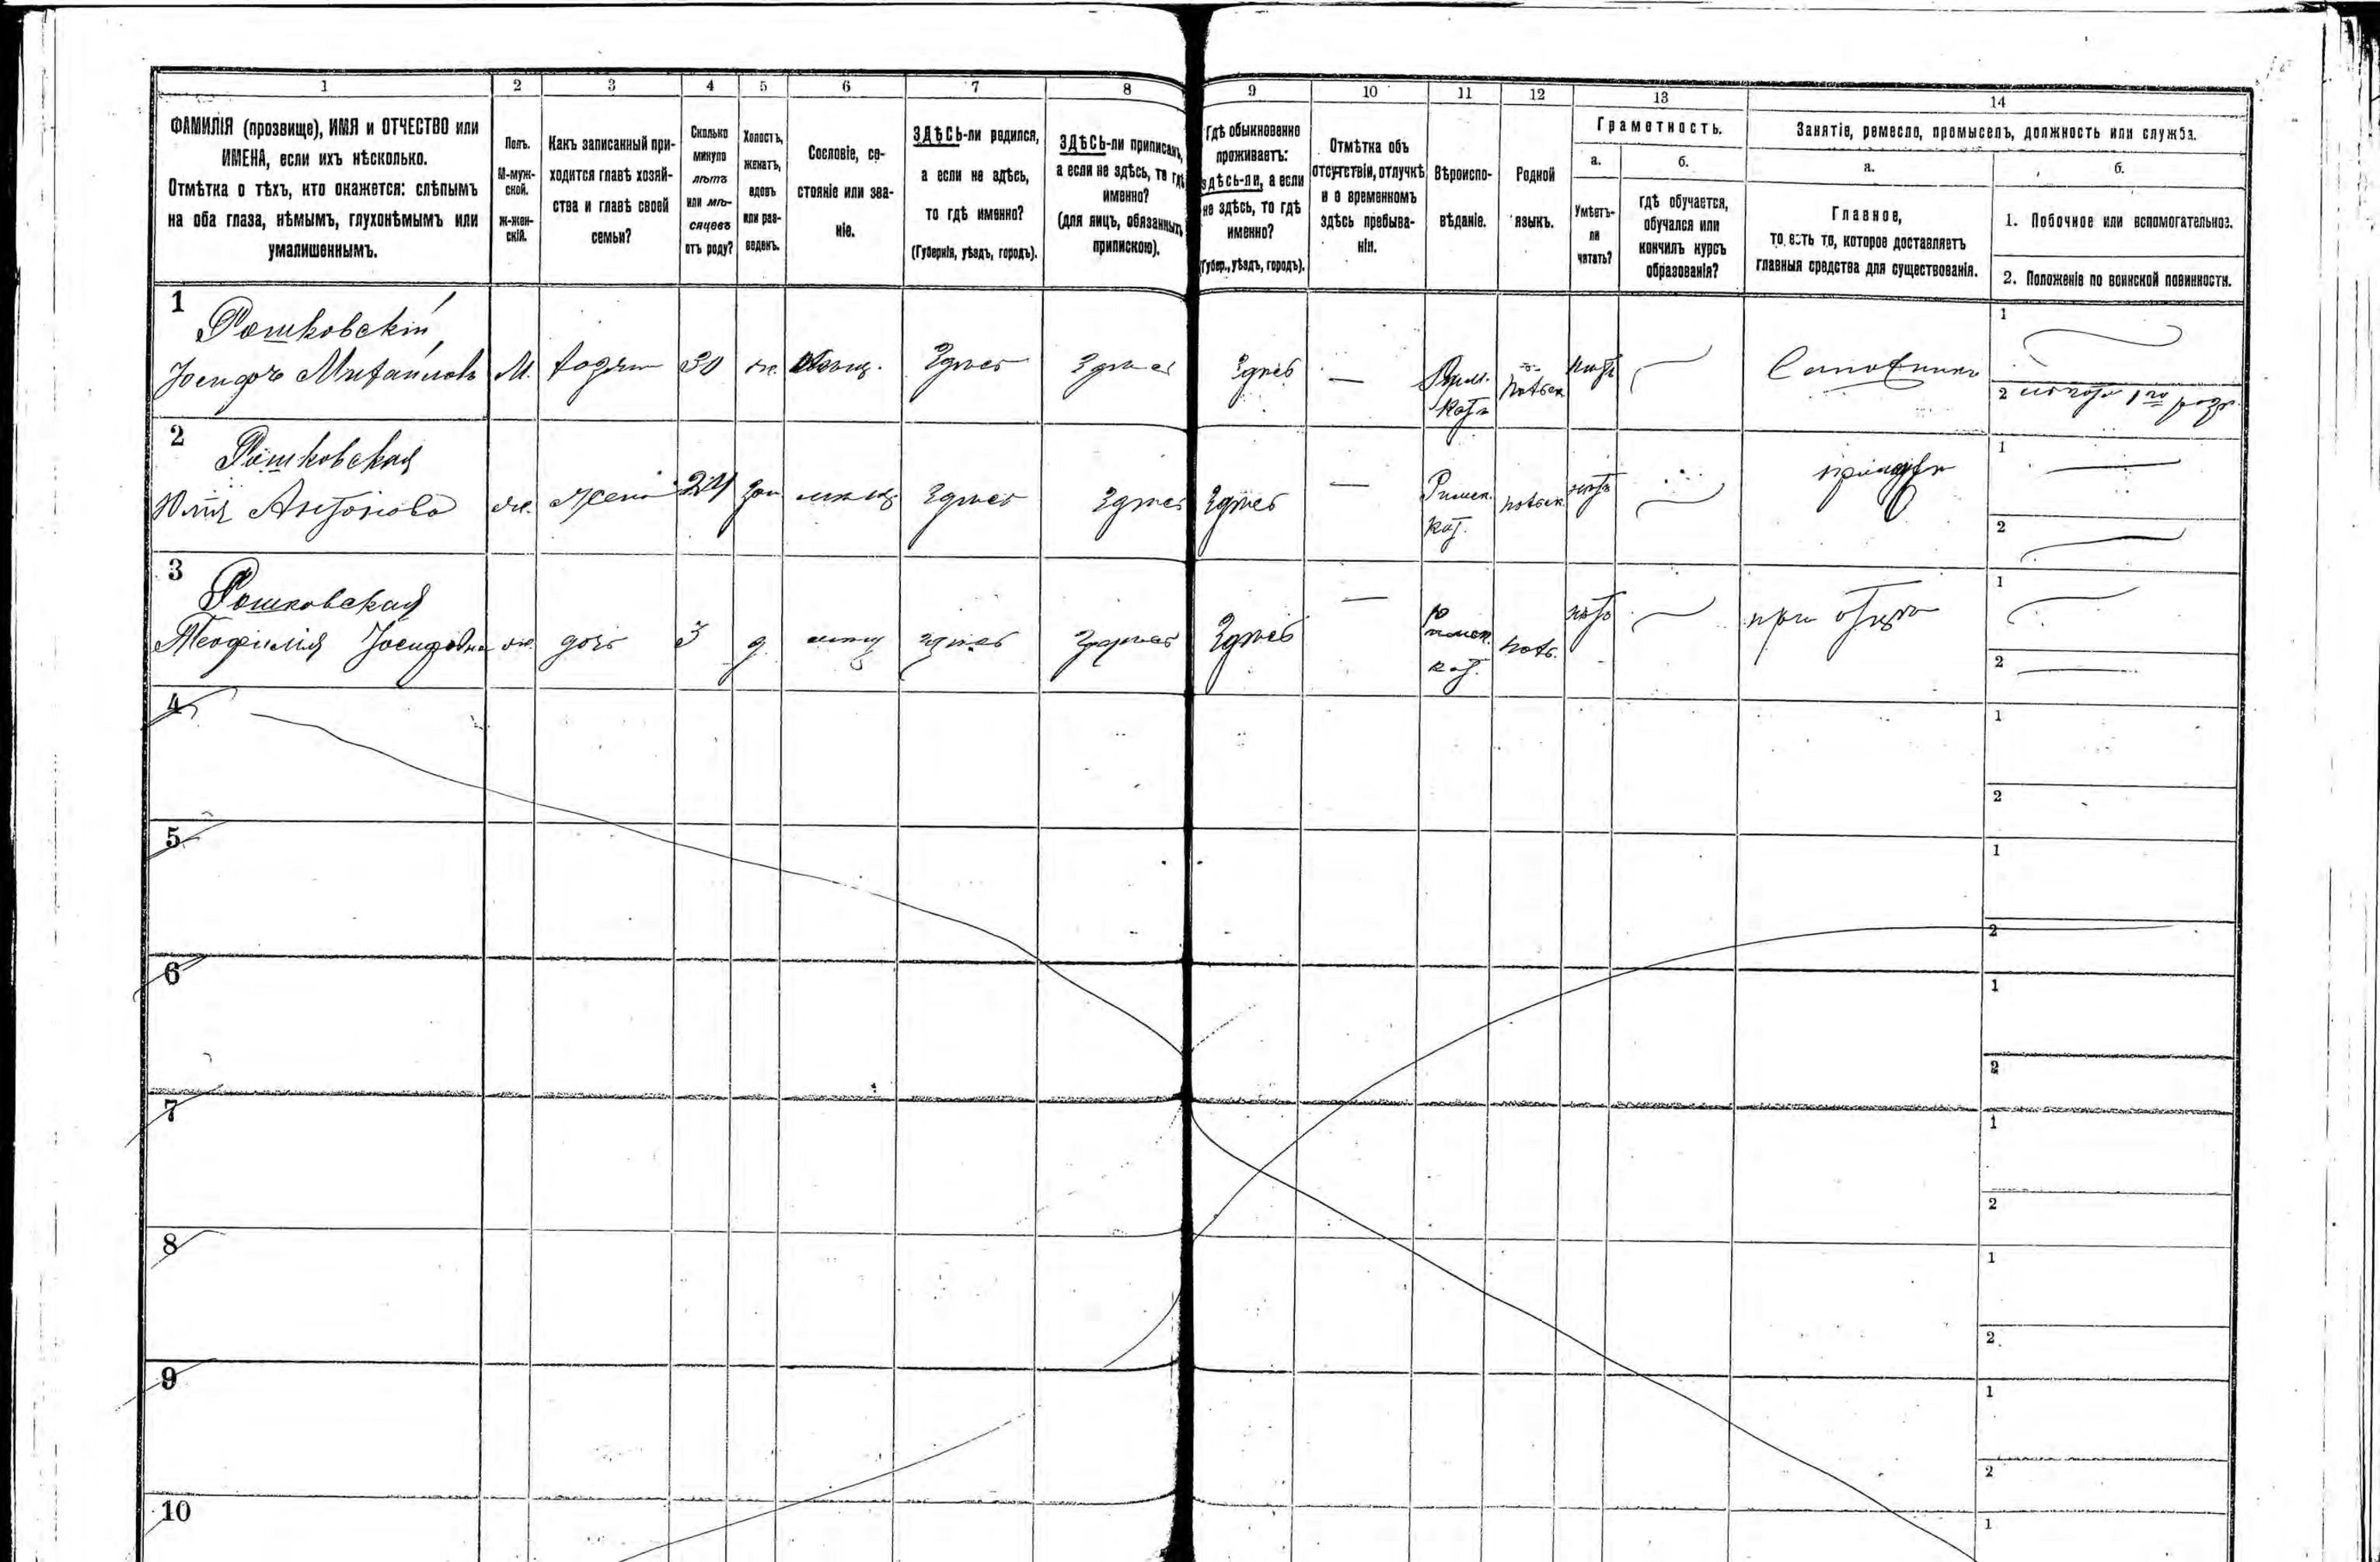 1 2 3 4 5 6 7 8 9 10 11 12 13 14
ФАМИЛІЯ (прозвище), ИМЯ и ОТЧЕСТВО или
ИМЕНА, если ихъ нѣсколько.
Отмѣтка о тѣхъ, кто окажется: слѣпымъ
на оба глаза, нѣмымъ, глухонѣмымъ или
умалишеннымъ.
Полъ.
М-муж-
ской.
Ж-жен-
скій.
Какъ записанный при-
ходится главѣ хозяй-
ства и главѣ своей
семьи?
Сколько
минуло
лѣтъ
или мѣ-
сяцевъ
отъ роду?
Холостъ,
женатъ,
вдовъ
или раз-
веденъ.
Сословіе, со-
стояніе или зва-
ніе.
ЗДѢСЬ-ли родился,
а если не здѣсь,
то гдѣ именно?
(Губернія, уѣздъ, городъ).
ЗДѢСЬ-ли приписанъ,
а если не здѣсь, то гдѣ
именно?
(для лицъ, обязанныхъ
припискою).
Гдѣ обыкновенно
проживаетъ:
здѣсь-ли, а если
не здѣсь, то гдѣ
именно?
(Губер., уѣздъ, городъ).
Отмѣтка объ
отсутствіи, отлучкѣ
и о временномъ
здѣсь пребыва-
ніи.
Вѣроиспо-
вѣданіе.
Родной
языкъ.
Грамотность.
а.
Умѣетъ-
ли
читать?
б.
гдѣ обучается,
обучался или
кончилъ курсъ
образованія?
Занятіе, ремесло, промыселъ, должность или служба.
а.
Главное,
то есть то, которое доставляетъ
главныя средства для существованія.
б.
1. Побочное или вспомогательное.
2. Положеніе по воинской повинности.
1
Рошковскій
Іосифъ Михайловъ М. 30 же. Здѣсь Здѣсь Здѣсь — Рим. Кат. польск нѣтъ Сапожникъ
1
2
2
Рошковская
Юлія Антонова же. жена 24 зам мѣщ Здѣсь Здѣсь Здѣсь — Римск. Кат. польск нѣтъ
1
2
3
Рошковская
Теофилія Іосифовна же. дочь 3 д. мѣщ здѣсь Здѣсь Здѣсь — Римск. кат. поль. нѣтъ при отцѣ
1
2
4
1
2
5
1
2
6
1
2
7
1
2
8
1
2
9
1
2
10
1